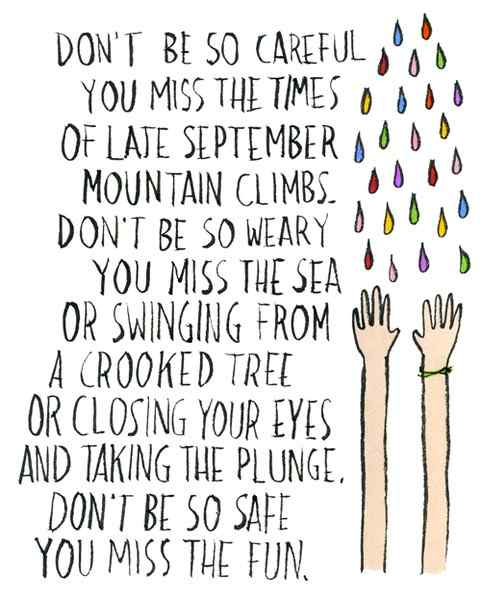 DON'T BE SO CAREFUL
YOU MISS THE TIMES
OF LATE SEPTEMBER
MOUNTAIN CLIMBS.
DON'T BE SO WEARY
YOU MISS THE SEA
OR SWINGING FROM
A CROOKED TREE
OR CLOSING YOUR EYES
AND TAKING THE PLUNGE.
DON'T BE SO SAFE
YOU MISS THE FUN.